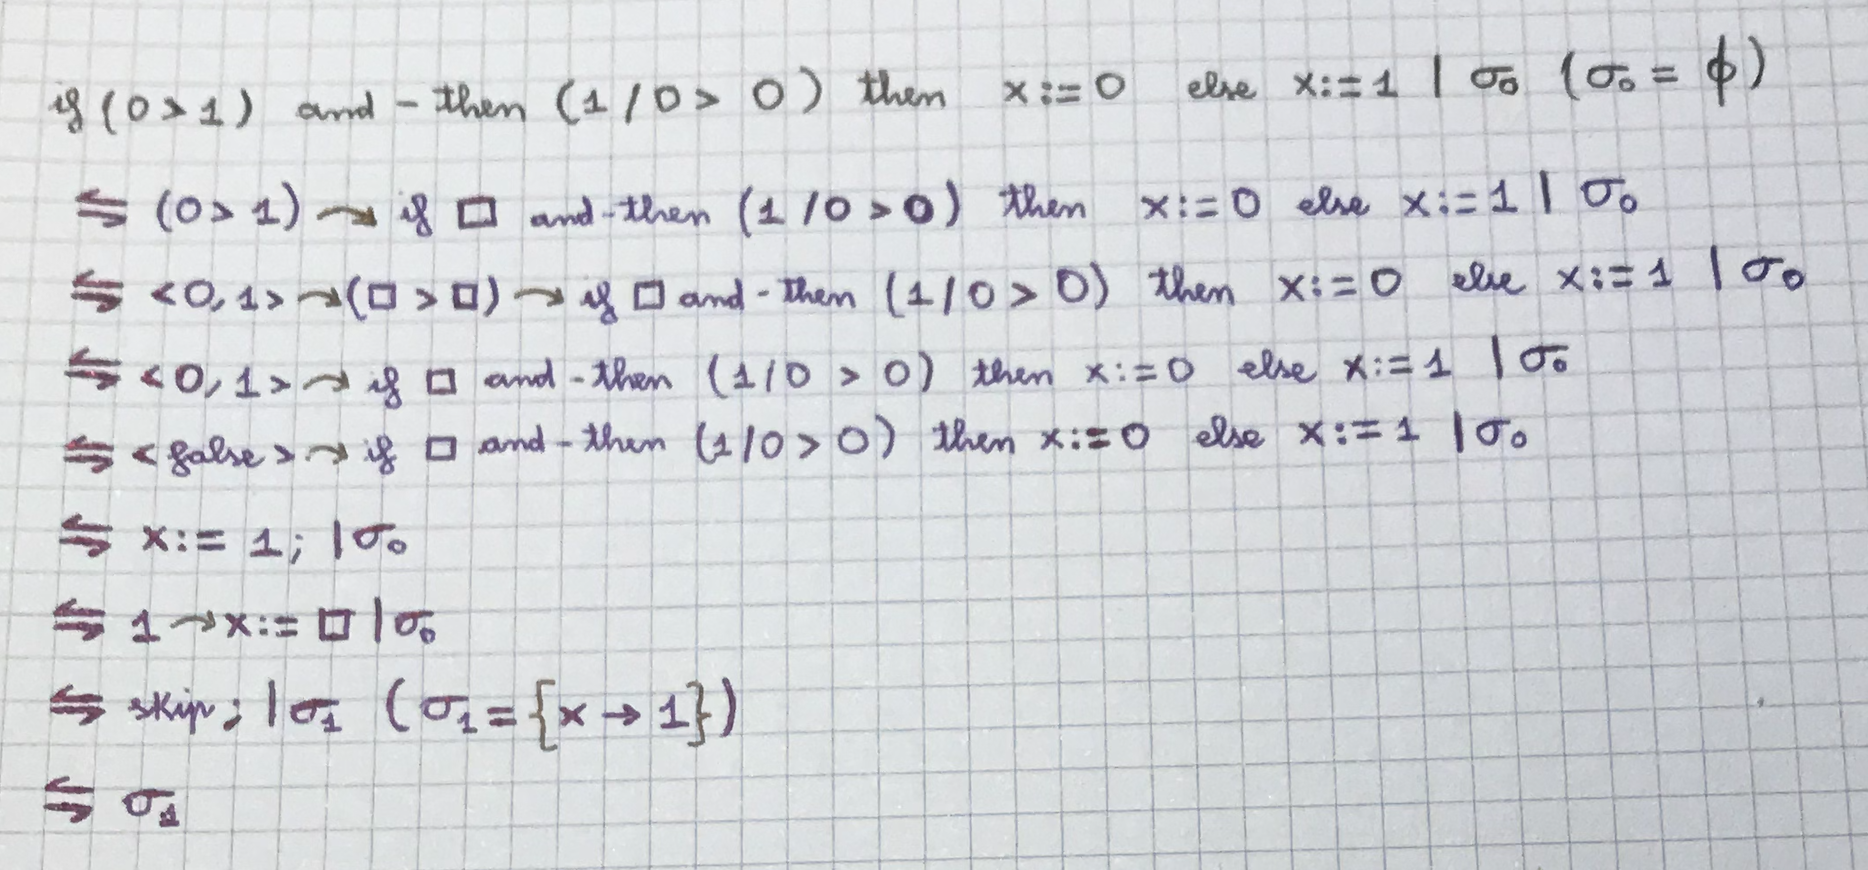 if (0 > 1) and-then (1 / 0 > 0) then x := 0 else x := 1 | σ₀ (σ₀ = ϕ)
⇋ (0 > 1) ↷ if □ and-then (1 / 0 > 0) then x := 0 else x := 1 | σ₀
⇋ <0, 1> ↷ (□ > □) ↷ if □ and-then (1 / 0 > 0) then x := 0 else x := 1 | σ₀
⇋ <0, 1> ↷ if □ and-then (1 / 0 > 0) then x := 0 else x := 1 | σ₀
⇋ <false> ↷ if □ and-then (1 / 0 > 0) then x := 0 else x := 1 | σ₀
⇋ x := 1; | σ₀
⇋ 1 ↷ x := □ | σ₀
⇋ skip; | σ₁ (σ₁ = {x → 1})
⇋ σ₁